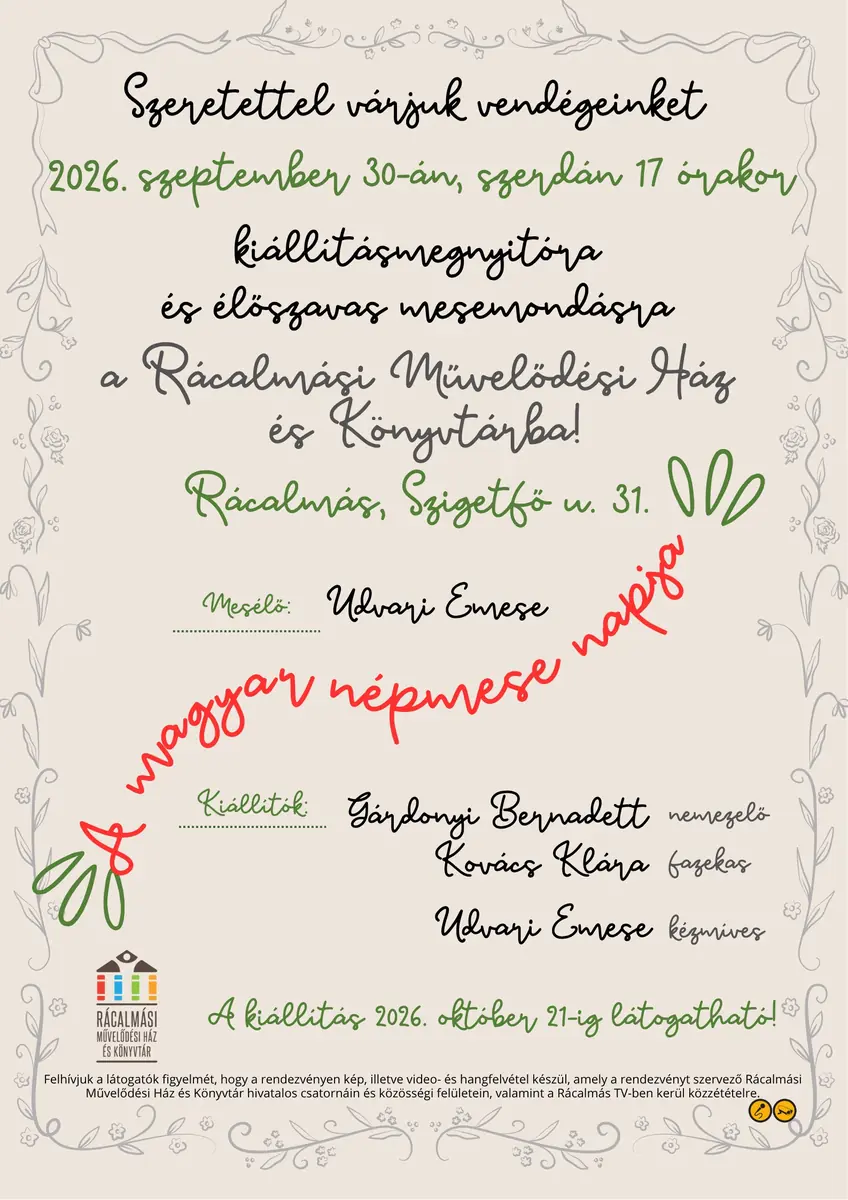 Szeretettel várjuk vendégeinket
2026. szeptember 30-án, szerdán 17 órakor
kiállításmegnyitóra
és élőszavas mesemondásra
a Rácalmási Művelődési Ház
és Könyvtárba!
Rácalmás, Szigetfő u. 31.
Mesélő: Udvari Emese
A magyar népmese napja
Kiállítók: Gárdonyi Bernadett nemezelő
Kovács Klára fazekas
Udvari Emese kézmíves
RÁCALMÁSI
MŰVELŐDÉSI HÁZ
ÉS KÖNYVTÁR
A kiállítás 2026. október 21-ig látogatható!
Felhívjuk a látogatók figyelmét, hogy a rendezvényen kép, illetve video- és hangfelvétel készül, amely a rendezvényt szervező Rácalmási
Művelődési Ház és Könyvtár hivatalos csatornáin és közösségi felületein, valamint a Rácalmás TV-ben kerül közzétételre.